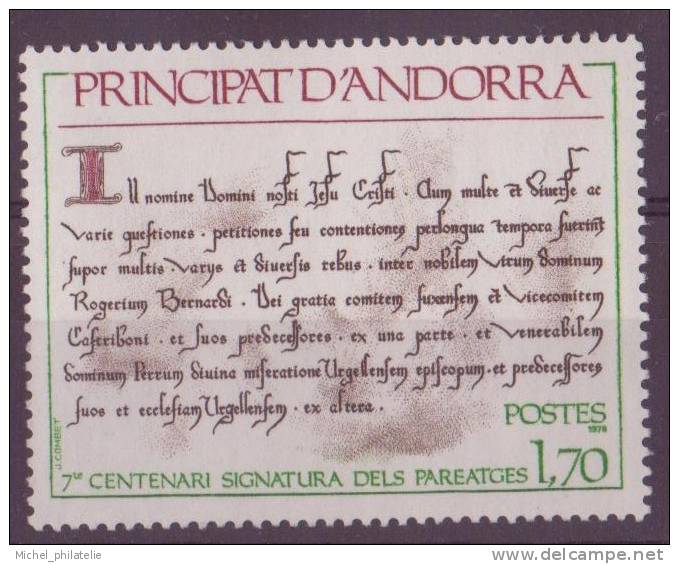 PRINCIPAT D'ANDORRA
In nomine Domini nosti Jesu Cristi · Cum multe et diverse ac
varie questiones · petitiones seu contentiones perlongua tempora fuerint
super multis · varys et diversis rebus · inter nobilem virum dominum
Rogerium Bernardi · Dei gratia comitem fuxensem et vicecomitem
Castriboni · et suos predecessores · ex una parte · et venerabilem
dominum Petrum divina miseratione Urgellensem episcopum · et predecessores
suos et ecclesiam Urgellensem · ex altera ·
POSTES
1978
J. COMBET
7ᵉ CENTENARI SIGNATURA DELS PAREATGES 1,70
Michel_philatelie
delcampe.net